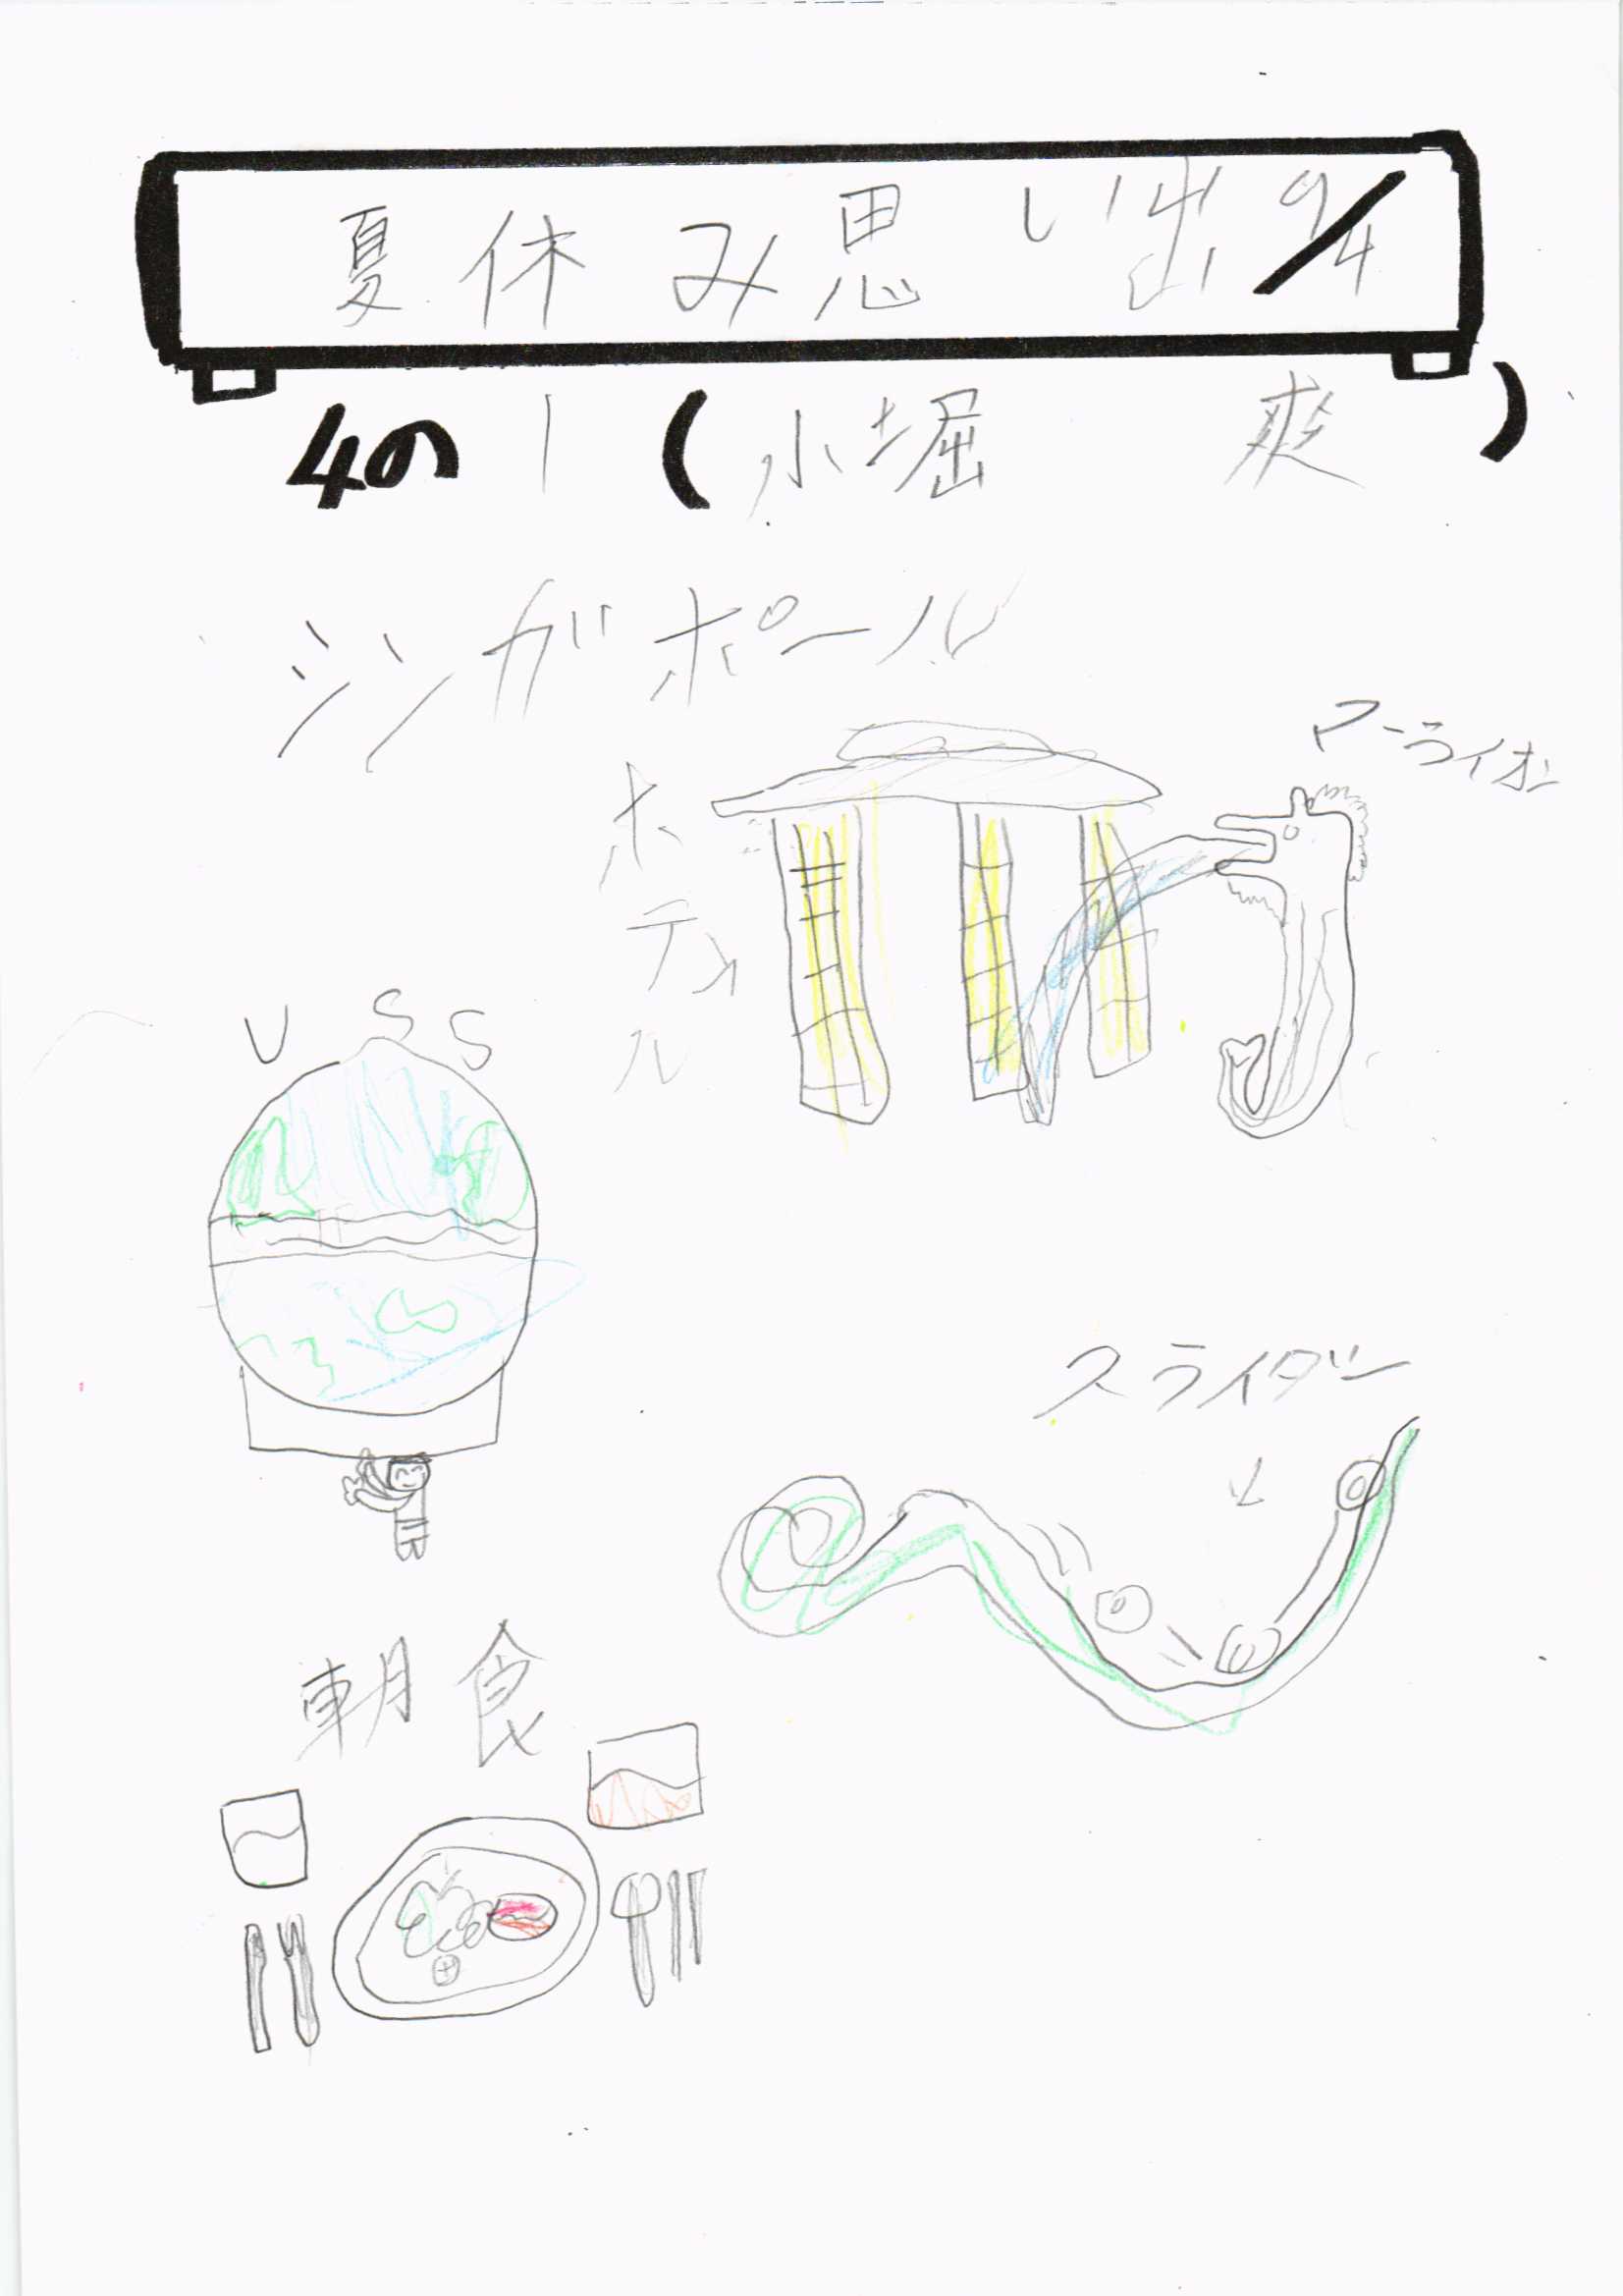 夏休み思い出 9/4
4の1(小堀 爽)
シンガポール
マーライオン
ホテル
USS
スライダー
朝食